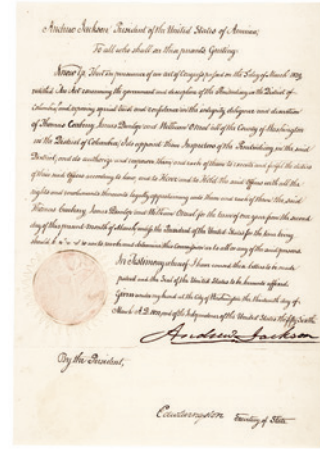 Andrew Jackson President of the United States of America;
To all who shall see these presents Greeting:
Know Ye, That in pursuance of an act of Congress passed on the day of March 1829
entitled An Act concerning the government and discipline of the Penitentiary in the District of
Columbia, and reposing special trust and confidence in the integrity diligence and discretion
of Thomas Carbery James Dunlop and William O'Neal all of the County of Washington
in the District of Columbia, I do appoint them Inspectors of the Penitentiary in the said
District, and do authorize and empower them and each of them to execute and fulfil the duties
of their said Offices according to law, and to Have and to Hold the said Offices with all the
rights and emoluments thereunto legally appertaining unto them and each of them the said
Thomas Carbery James Dunlop and William O'Neal for the term of one year from the second
day of this present month of March, the President of the United States for the time being
should be to revoke and determine this Commission as to all or any of the said persons
In Testimony whereof I have caused these letters to be made
patent and the Seal of the United States to be hereunto affixed
Given under my hand at the City of Washington the day of
March A.D. and of the Independence of the United States the fifty sixth
Andrew Jackson
By the President,
Edw Livingston Secretary of State